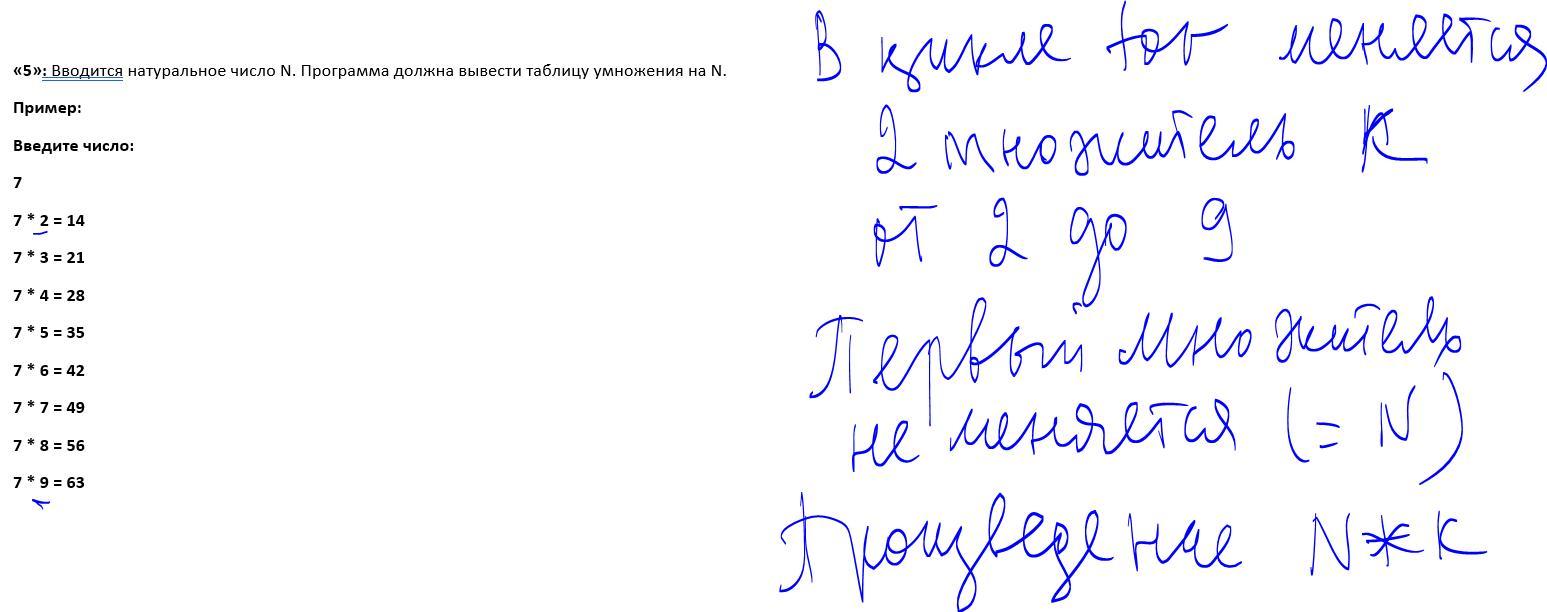 «5»: Вводится натуральное число N. Программа должна вывести таблицу умножения на N.
Пример:
Введите число:
7
7 * 2 = 14
7 * 3 = 21
7 * 4 = 28
7 * 5 = 35
7 * 6 = 42
7 * 7 = 49
7 * 8 = 56
7 * 9 = 63
В цикле for меняется
2 множитель K
от 2 до 9
Первый множитель
не меняется (= N)
Произведение N * K